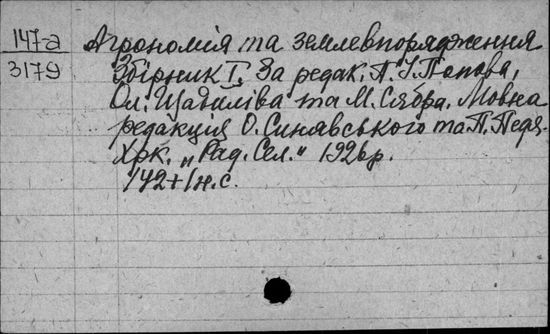 147-а
3179
Агрономія та землевпорядження
Збірник I. За редак. П. І. Попова,
Ол. Щадиліва та М. Сябра. Мовна
редакція О. Синявського та П. Педя.
Хрк. „Рад. Сел.“ 1926р.
142+1н.с.